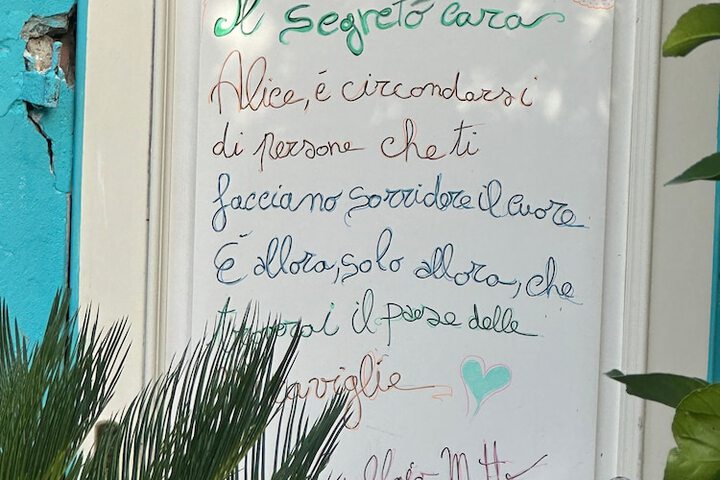 Il segreto cara
Alice, é circondarsi
di persone che ti
facciano sorridere il cuore
È allora, solo allora, che
troverai il paese delle